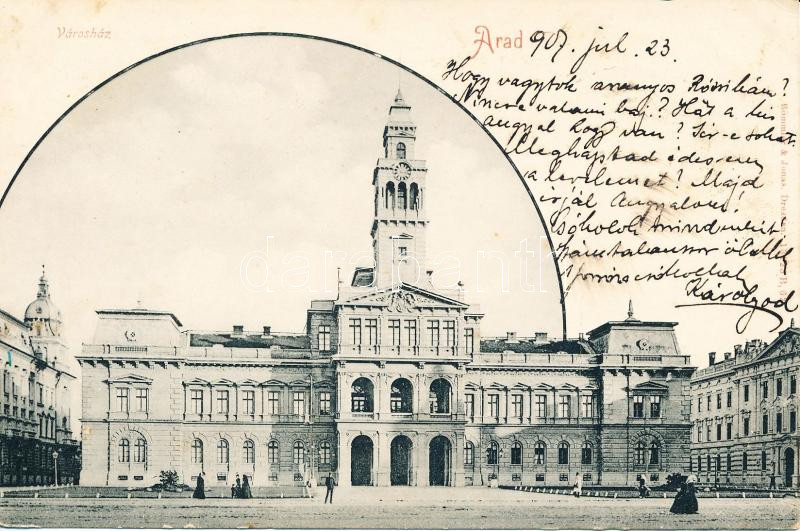 Városház
Arad 907. jul. 23.
Hogy vagytok aranyos Rózsikám?
Nincs-e valami baj? Hát a kis
angyal hogy van? Sir-e sokat.
Megkaptad édesem
a levelemet? Majd
írjál Angyalom!
Csókolok mindenkit
számtalanszor ölellek
forró csókokkal
Károlyod